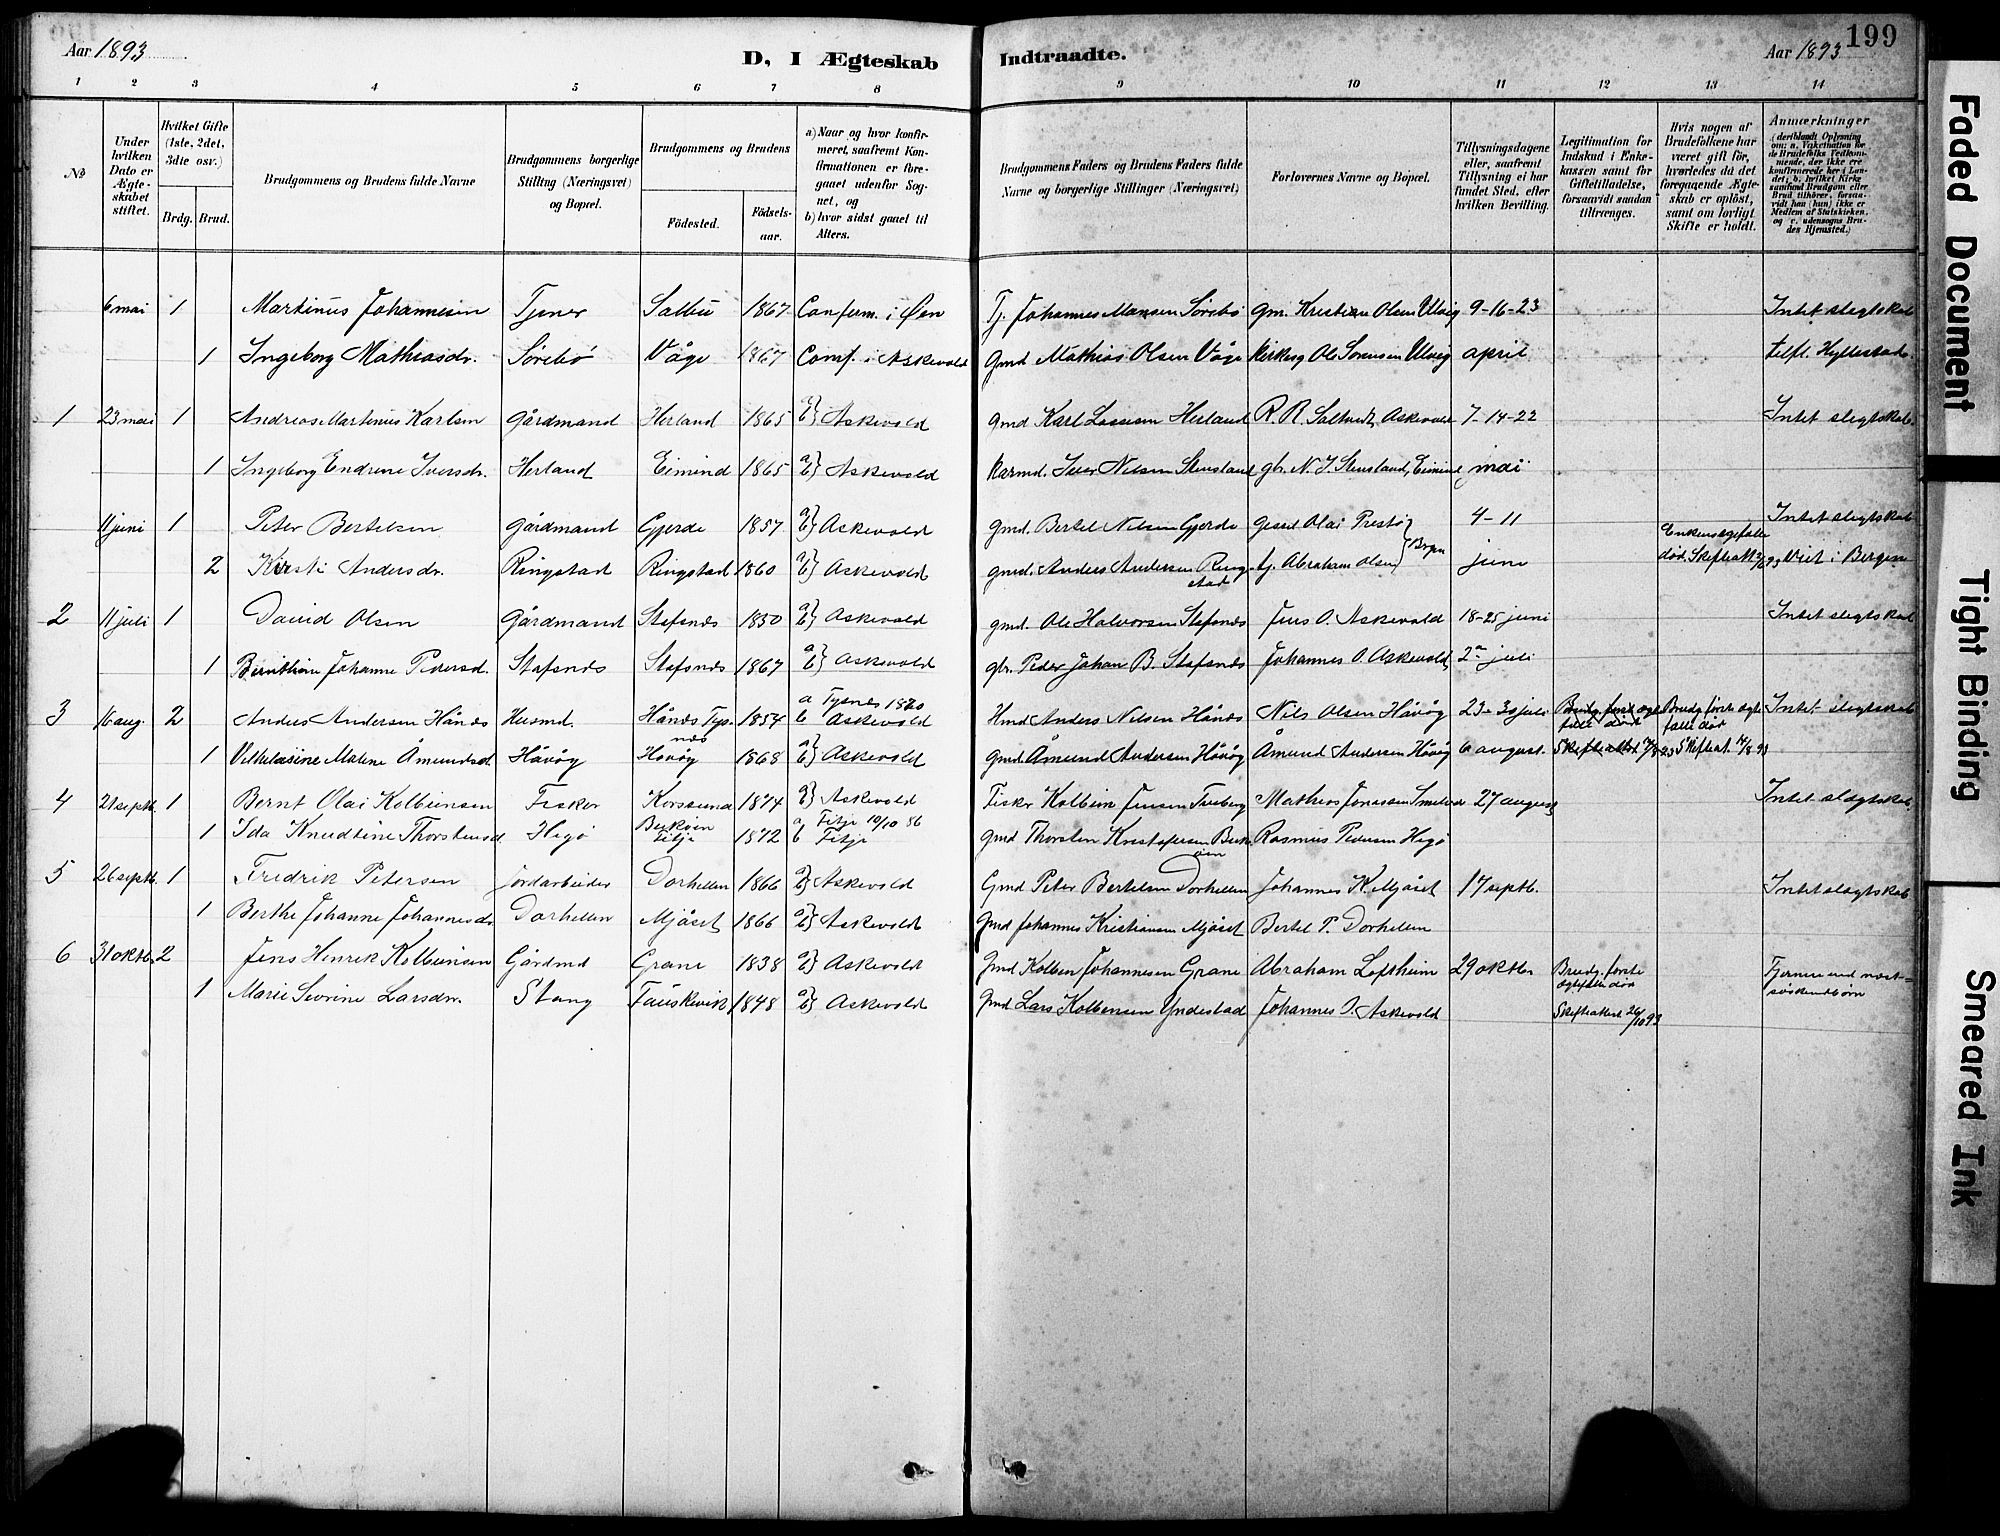 199
Aar 1893
D, I Ægteskab Indtraadte.
Aar 1893
1 2 3 4 5 6 7 8 9 10 11 12 13 14
No
Under hvilken Dato er Ægteskabet stiftet.
Hvilket Gifte (1ste, 2det, 3die osv.)
Brdg. Brud.
Brudgommens og Brudens fulde Navne
Brudgommens borgerlige Stilling (Næringsvei) og Bopæl.
Brudgommens og Brudens
Fødested. Fødselsaar.
a) Naar og hvor konfirmeret, saafremt Konfirmationen er foregaaet udenfor Sognet, og
b) hvor sidst gaaet til Alters.
Brudgommens Faders og Brudens Faders fulde Navne og borgerlige Stillinger (Næringsvei)
Forlovernes Navne og Bopæl.
Tillysningsdagene eller, saafremt Tillysning ei har fundet Sted, efter hvilken Bevilling.
Legitimation for Indskud i Enkekassen samt for Giftetilladelse, forsaavidt saadan tiltrænges.
Hvis nogen af Brudefolkene har været gift før, hvorledes da det foregaaende Ægteskab er opløst, samt om lovligt Skifte er holdt.
Anmærkninger (deriblandt Oplysning om: a. Vakcination for de Brudefolks Vedkommende, der ikke ere konfirmerede her i Landet; b. hvilket Kirkesamfund Brudgom eller Brud tilhører, forsaavidt han (hun) ikke er Medlem af Statskirken, og c. udensogns Brudes Hjemsted.)
6 mai 1 Martinus Johannesen Tjener Salbu 1867 Conferm. i Øen Tj. Johannes Monsen Sørebø Gm. Kristian Olsen Ulvig 9-16-23 Intet slegtskab
1 Ingeborg Mathiasdr. Sørebø Våge 1867 Conf. i Askevold Gmd Mathias Olsen Våge Kirkesg Ole Sorensen Ulvig april tilfl. Hyllestad
1 23 mai 1 Andreas Martinus Karlsen Gårdmand Herland 1865 a) b) Askevold Gmd Karl Lassesen Herland R. R. Saltvedt, Askevold 7-14-22 Intet slegtskab
1 Ingeborg Endrine Iversdr. Herland Eimind 1865 a) b) Askevold Kaarmd. Iver Nilsen Stensland gbr. N. I. Stensland, Eimind mai
11 juni 1 Peter Bertelsen Gårdmand Gjerde 1857 a) b) Askevold gmd. Bertel Nilsen Gjerde Gesel Olai Prestø 4-11 Intet slegtskab
2 Kirsti Andersdr. Ringstad Ringstad 1860 a) b) Askevold gmd. Anders Andersen Ringstad tj. Abraham Olsen } Brgn juni Enkens egtefælle død, Skifteatt Viet i Bergen
2 11 juli 1 David Olsen Gårdmand Stafsnes 1850 a) b) Askevold gmd. Ole Halvorsen Stafsnes Jens O. Askevold 18-25 juni Intet slegtskab
1 Johanne Pedersd. Stafsnes Stafsnes 1867 a) b) Askevold gbr. Peder Johan B. Stafsnes Johannes O. Askevold, 2 juli
3 16 aug. 2 Anders Andersen Hånes Husmd. Hånes Tysnes 1854 a Tysnes 1870 b Askevold Hmd Anders Nilsen Hånes Nils Olsen Håvåg 23-30 juli Brudg. første egtefælle død Brudg. første egtefælle død Intet slegtskab
1 Vilhelmsine Malene Åmundsd Håvåg Håvåg 1868 a) b) Askevold gmd. Åmund Andersen Håvåg Åmund Andersen Håvåg 6 august. Skifteattest Skifteat. 14/8 93
4 21 septb. 1 Bernt Olai Kolbeinsen Fisker Korssund 1874 a) b) Askevold Fisker Kolbein Jensen Tveberg Mathias Jonassen 27 august Intet slegtskab
1 Ida Knudtine Thorstensd. Hegø Berkøen Fitje 1872 a Fitje 10/10 86 b Fitje gmd Thorsten Kristofersen Berkøen Rasmus Pedersen Hegø
5 26 septb. 1 Fredrik Petersen Jordarbeider Dorhellen 1866 a) b) Askevold Gmd Peter Bertelsen Dorhellen Johannes K. Mjåset 17 septb. Intet slegtskab
1 Berthe Johanne Johannesdr. Dorhellen Mjåset 1866 a) b) Askevold gmd Johannes Kristiansen Mjåset Bertel P. Dorhellen
6 31 oktb. 2 Jens Henrik Kolbeinsen Gårdmd Grane 1838 a) b) Askevold Gmd Kolben Johannesen Grane Abraham Loftheim 29 oktbr Brudg. første egtefælle død Fjernere end næstsøskendbørn
1 Marie Severine Larsdr. Stang Fauskevik 1848 a) b) Askevold Gmd Lars Kolbensen Yndestad Johannes O. Askevold Skifteattest 26/10 93
Faded Document
Tight Binding
Smeared Ink